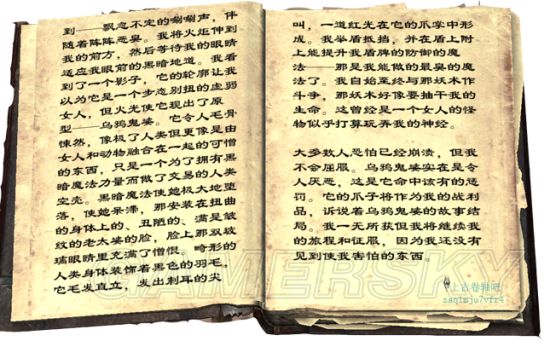 到——飘忽不定的唰唰声，伴
随着阵阵恶臭。我将火炬伸到
我的前方，然后等待我的眼睛
适应我眼前的黑暗地道。我看
到了一个影子，它的轮廓让我
以为它是一个步态别扭的虚弱
女人，但火光使它现出了原
型——乌鸦鬼婆。它令人毛骨
悚然，像极了人类但更像是由
女人和动物融合在一起的可憎
的东西，只是一个为了拥有黑
暗魔法力量而做了交易的人类
空壳。黑暗魔法使她极大地堕
落，使她呆滞，那安装在扭曲
的身体上的、丑陋的、满是皱
纹的老太婆的脸，脸上那双玻
璃眼睛里充满了憎恨。畸形的
人类身体装饰着黑色的羽毛，
它毛发直立，发出刺耳的尖
叫，一道红光在它的爪掌中形
成。我举盾抵挡，并在盾上附
上能提升我盾牌的防御的魔
法——那是我能做的最臭的魔
法了。我自始至终与那妖术作
斗争，那妖术好像要抽干我的
生命。这曾经是一个女人的怪
物似乎打算玩弄我的神经。
大多数人恐怕已经崩溃，但我
不会屈服。乌鸦鬼婆实在是令
人厌恶，这是它命中该有的惩
罚。它的爪子将作为我的战利
品，诉说着乌鸦鬼婆的故事结
局。我一无所获但我将继续我
的旅程和征服，因为我还没有
见到使我害怕的东西。
GAMERSKY
上古卷轴吧
zaqimju7vfr4